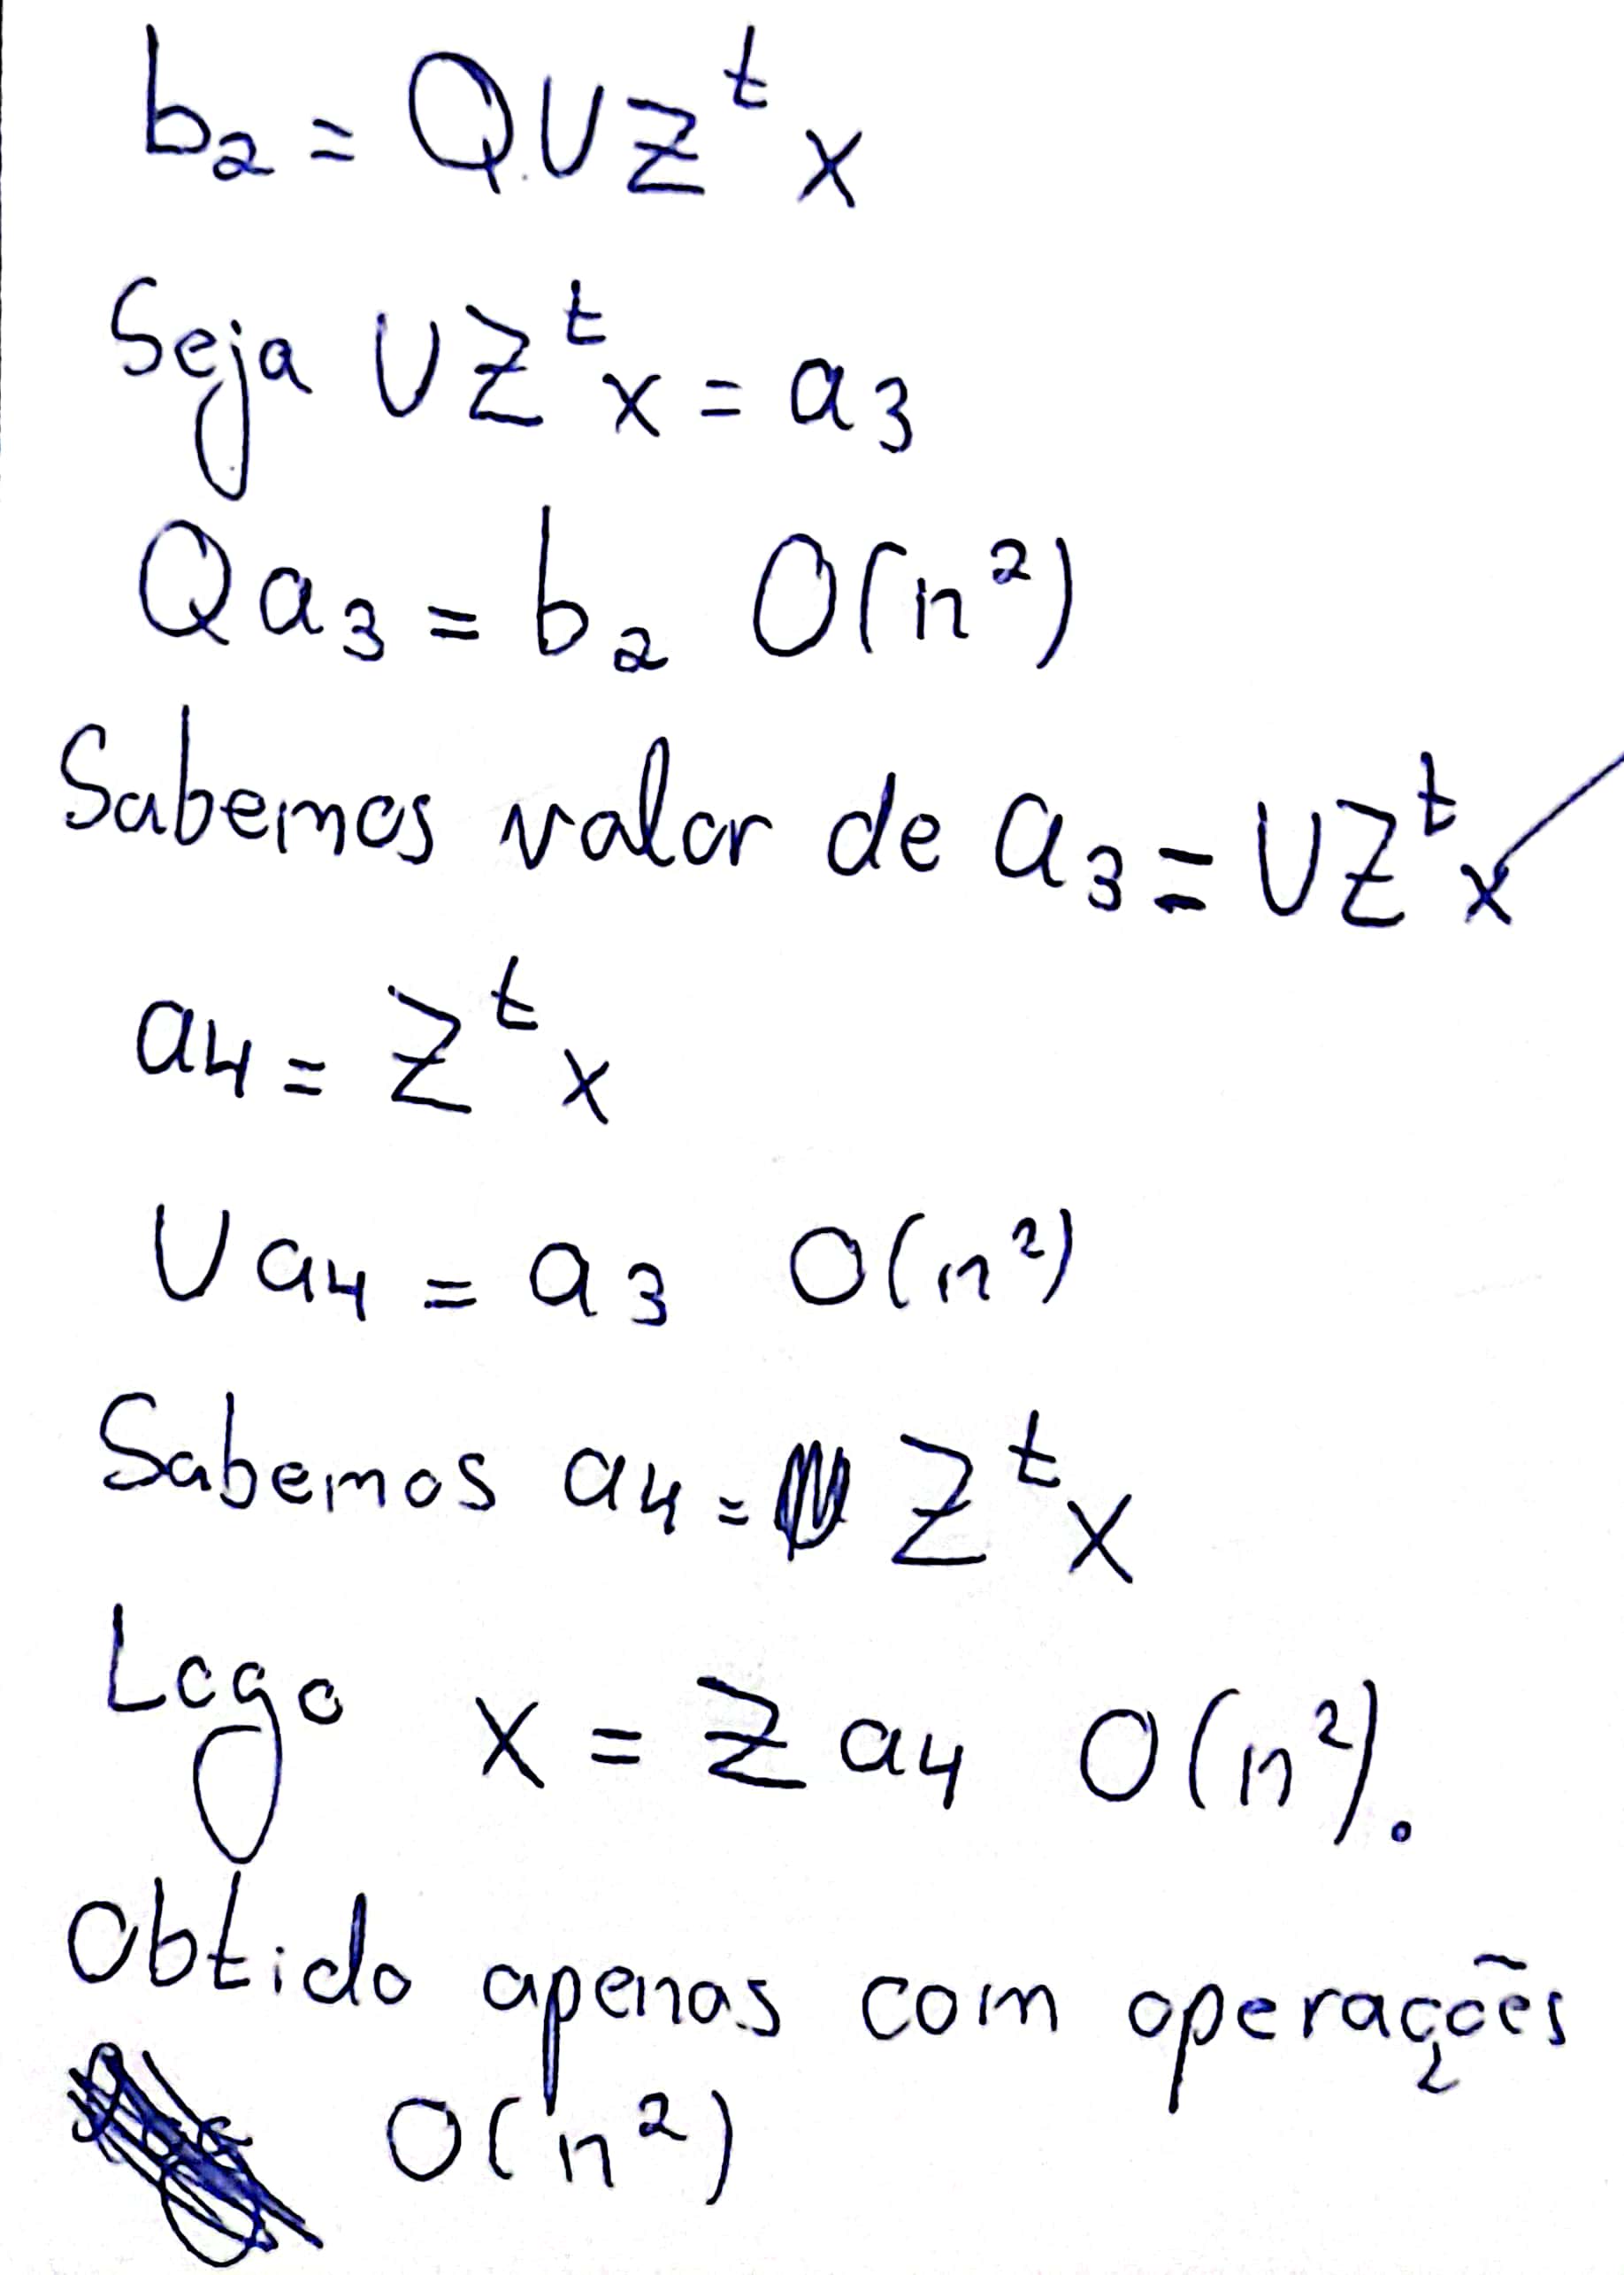 b₂ = QUZᵗx
Seja UZᵗx = a₃
Qa₃ = b₂ O(n²)
Sabemos valor de a₃ = UZᵗx
a₄ = Zᵗx
Ua₄ = a₃ O(n²)
Sabemos a₄ = Zᵗx
Logo x = Za₄ O(n²).
Obtido apenas com operações
O(n²)